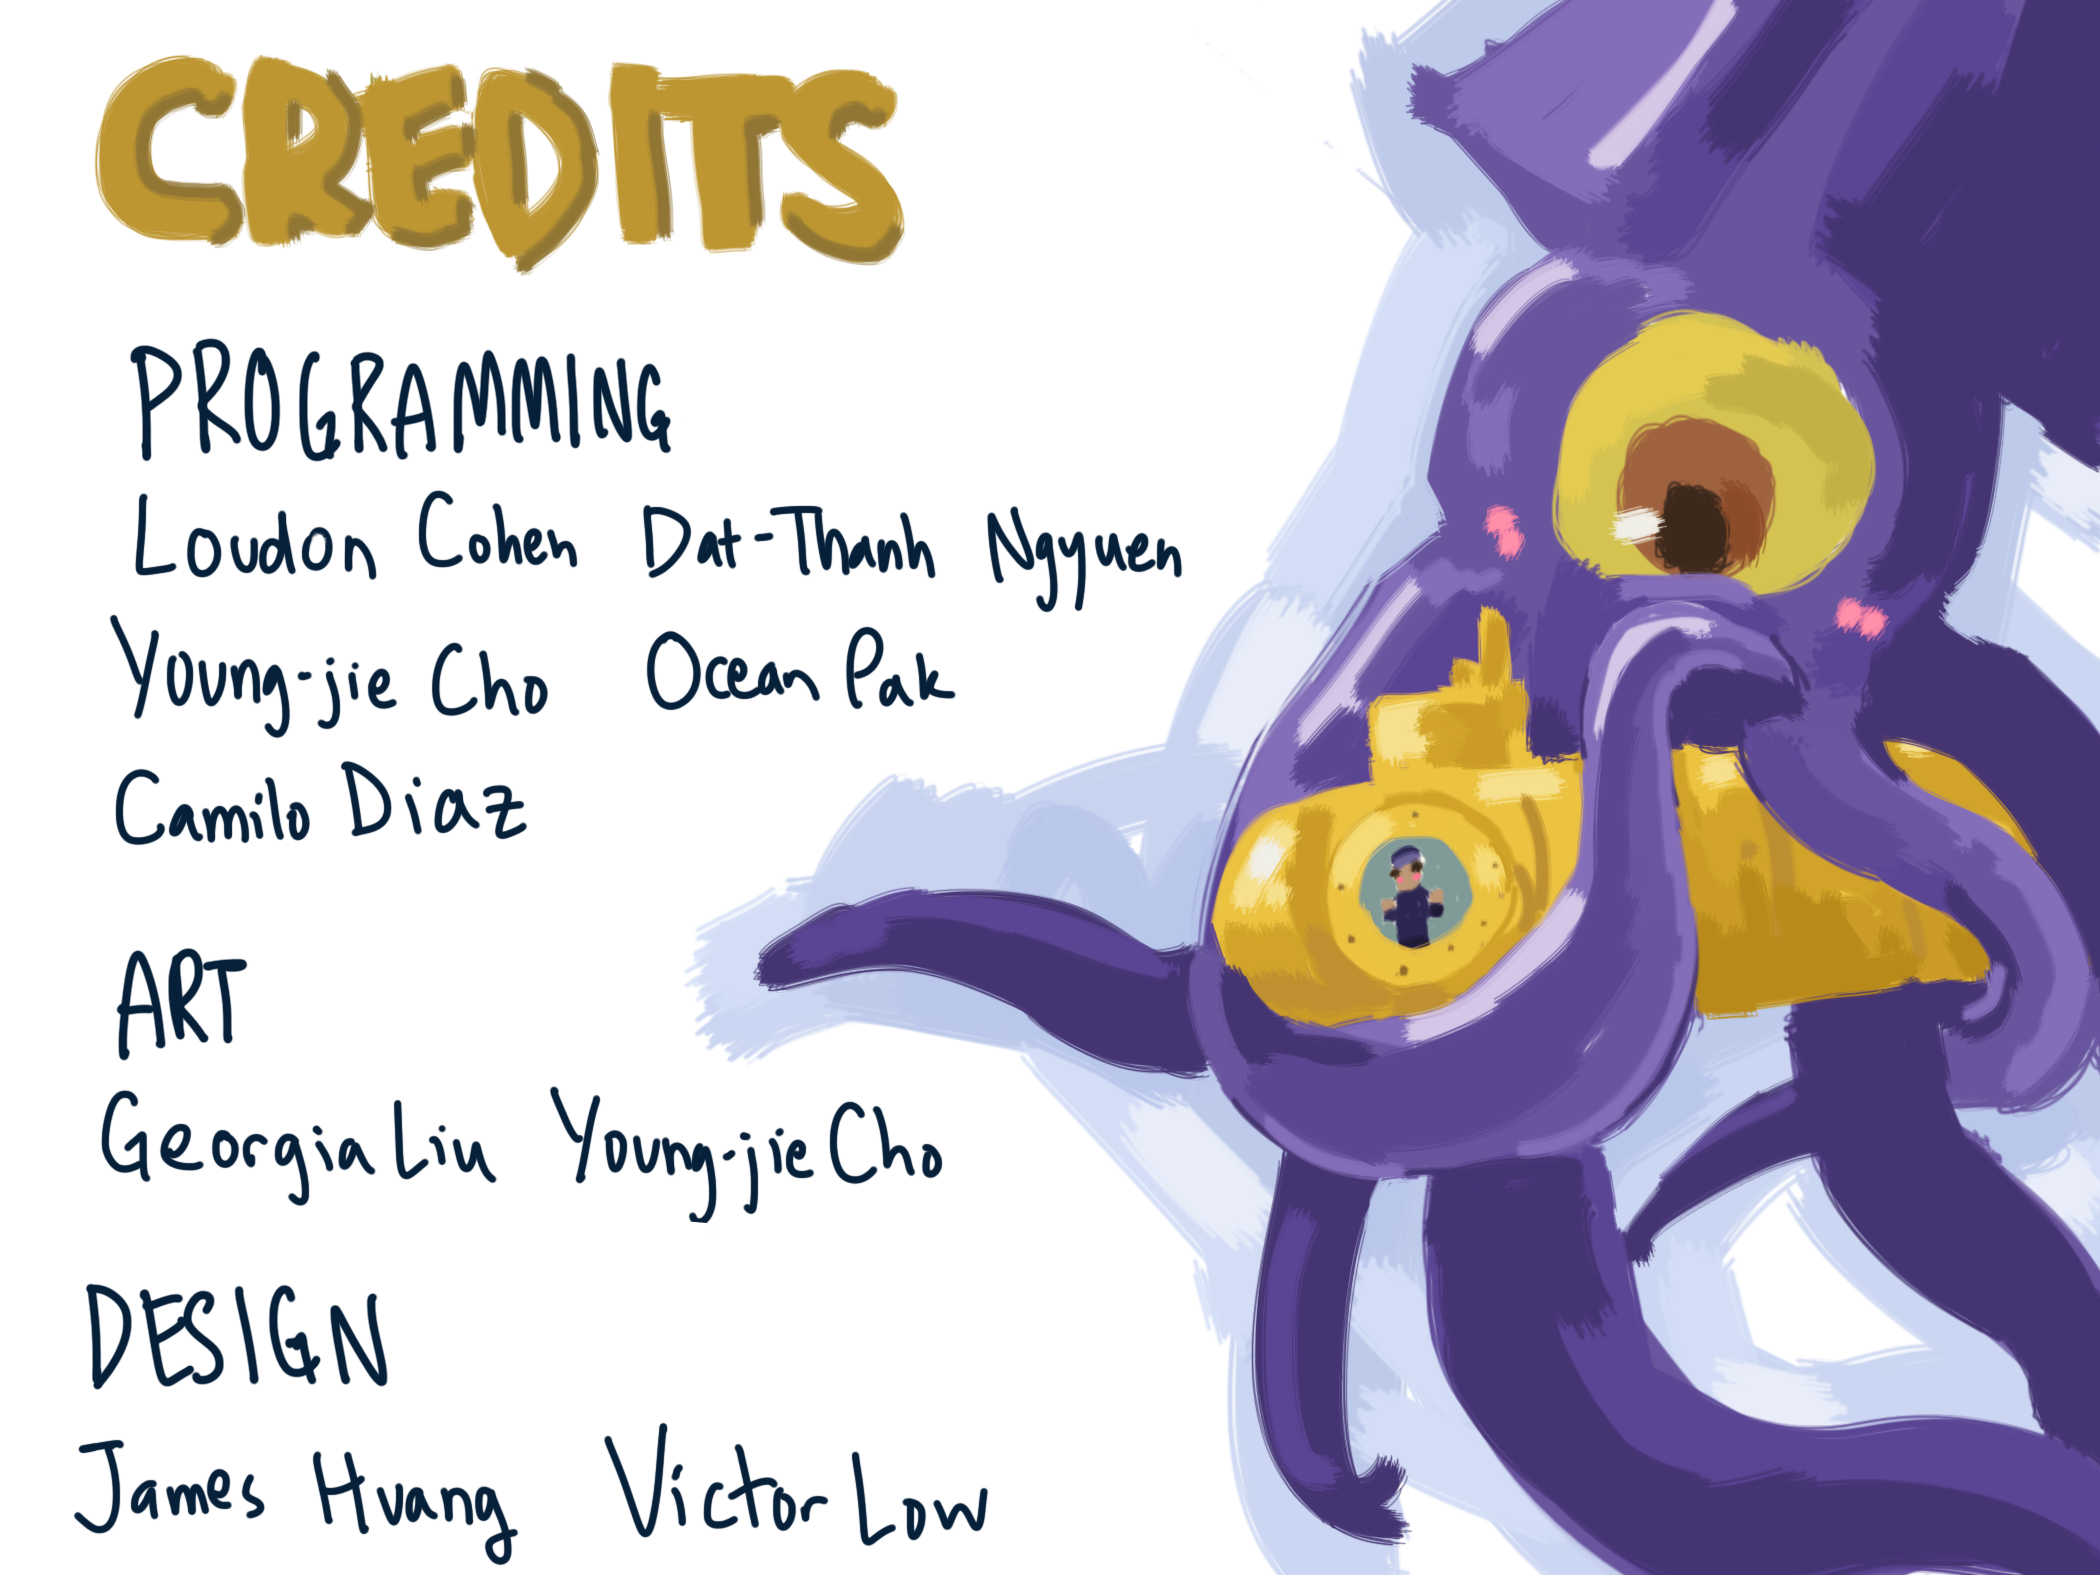 CREDITS
PROGRAMMING
Loudon Cohen Dat-Thanh Ngyuen
Young-jie Cho Ocean Pak
Camilo Diaz
ART
Georgia Liu Young-jie Cho
DESIGN
James Huang Victor Low